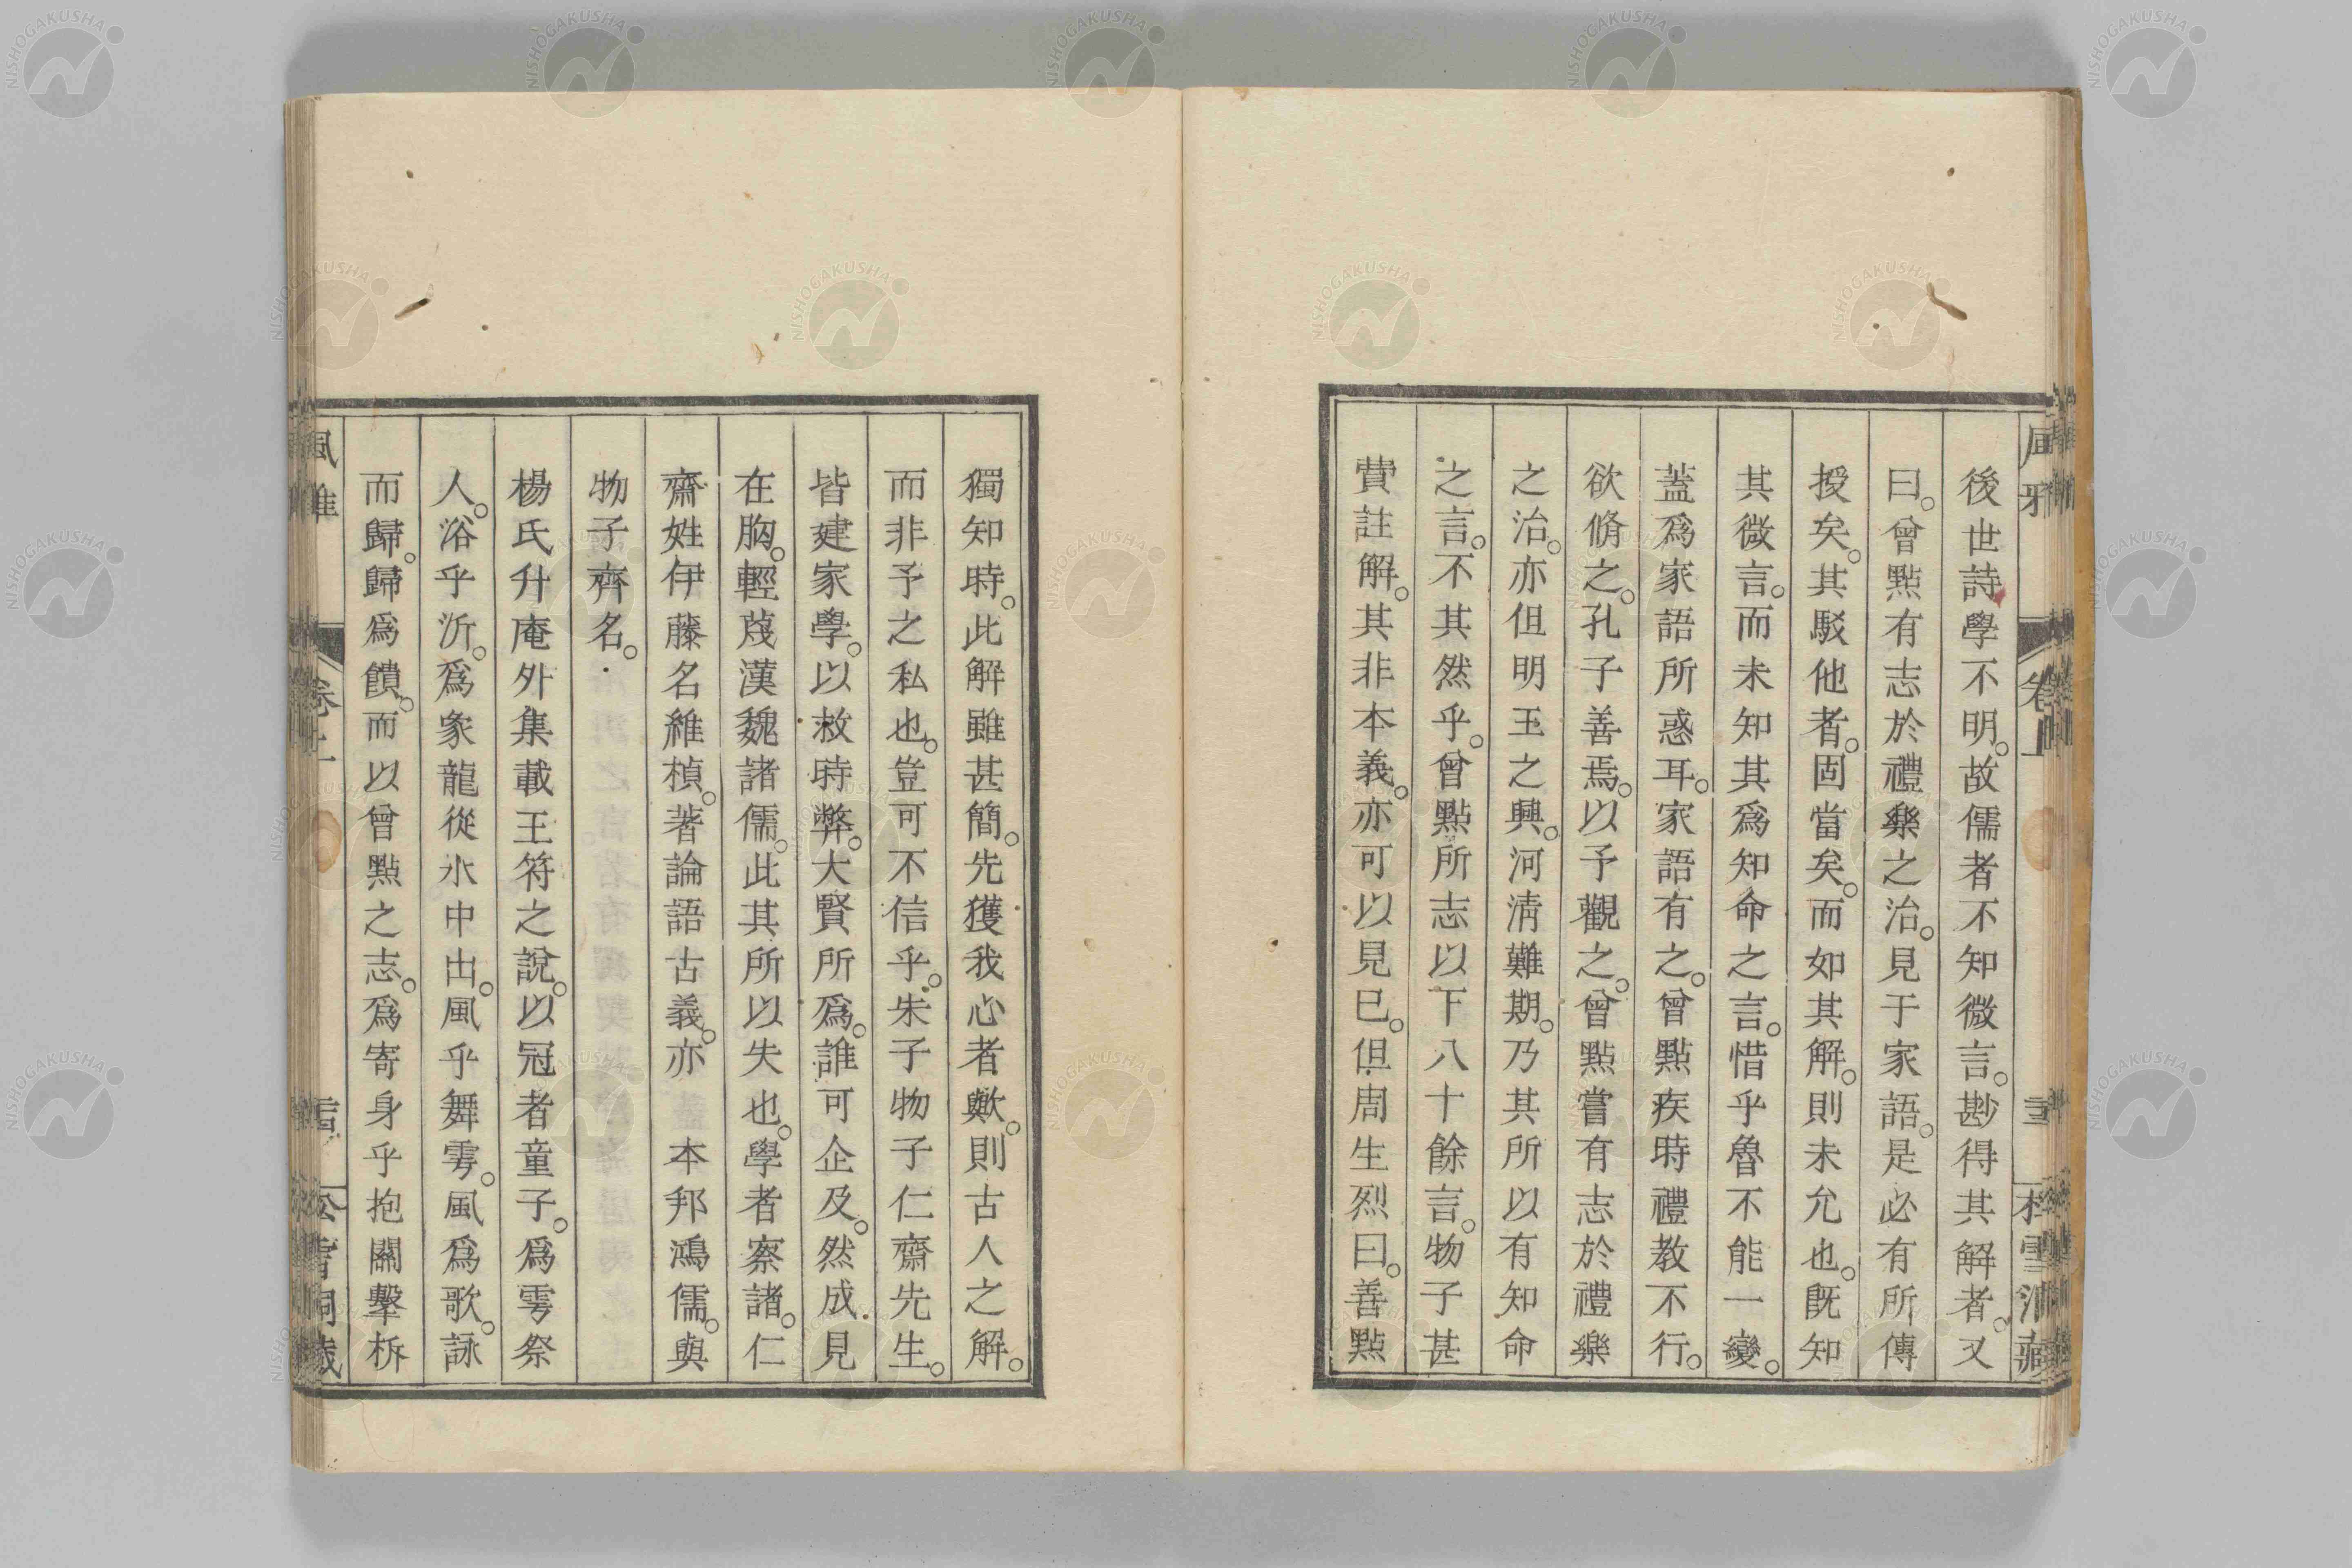 後世詩學不明。故儒者不知微言。尠得其解者。又
曰。曾點有志於禮樂之治。見于家語。是必有所傳
授矣。其駁他者。固當矣。而如其解。則未允也。既知
其微言。而未知其爲知命之言。惜乎魯不能一變。
蓋爲家語所惑耳。家語有之。曾點疾時禮教不行。
欲脩之。孔子善焉。以予觀之。曾點嘗有志於禮樂
之治。亦但明王之興。河淸難期。乃其所以有知命
之言。不其然乎。曾點所志以下八十餘言。物子甚
費註解。其非本義。亦可以見已。但周生烈曰。善點
獨知時。此解雖甚簡。先獲我心者歟。則古人之解。
而非予之私也。豈可不信乎。朱子物子仁齋先生。
皆建家學。以救時弊。大賢所爲。誰可企及。然成見
在胸。輕蔑漢魏諸儒。此其所以失也。學者察諸。仁
齋姓伊藤名維楨。著論語古義。亦 本邦鴻儒。與
物子齊名。
楊氏升庵外集載王符之說。以冠者童子。爲雩祭
人。浴乎沂。爲象龍從水中出。風乎舞雩。風爲歌。詠
而歸。歸爲饋。而以曾點之志。爲寄身乎抱關擊柝
NISHOGAKUSHA